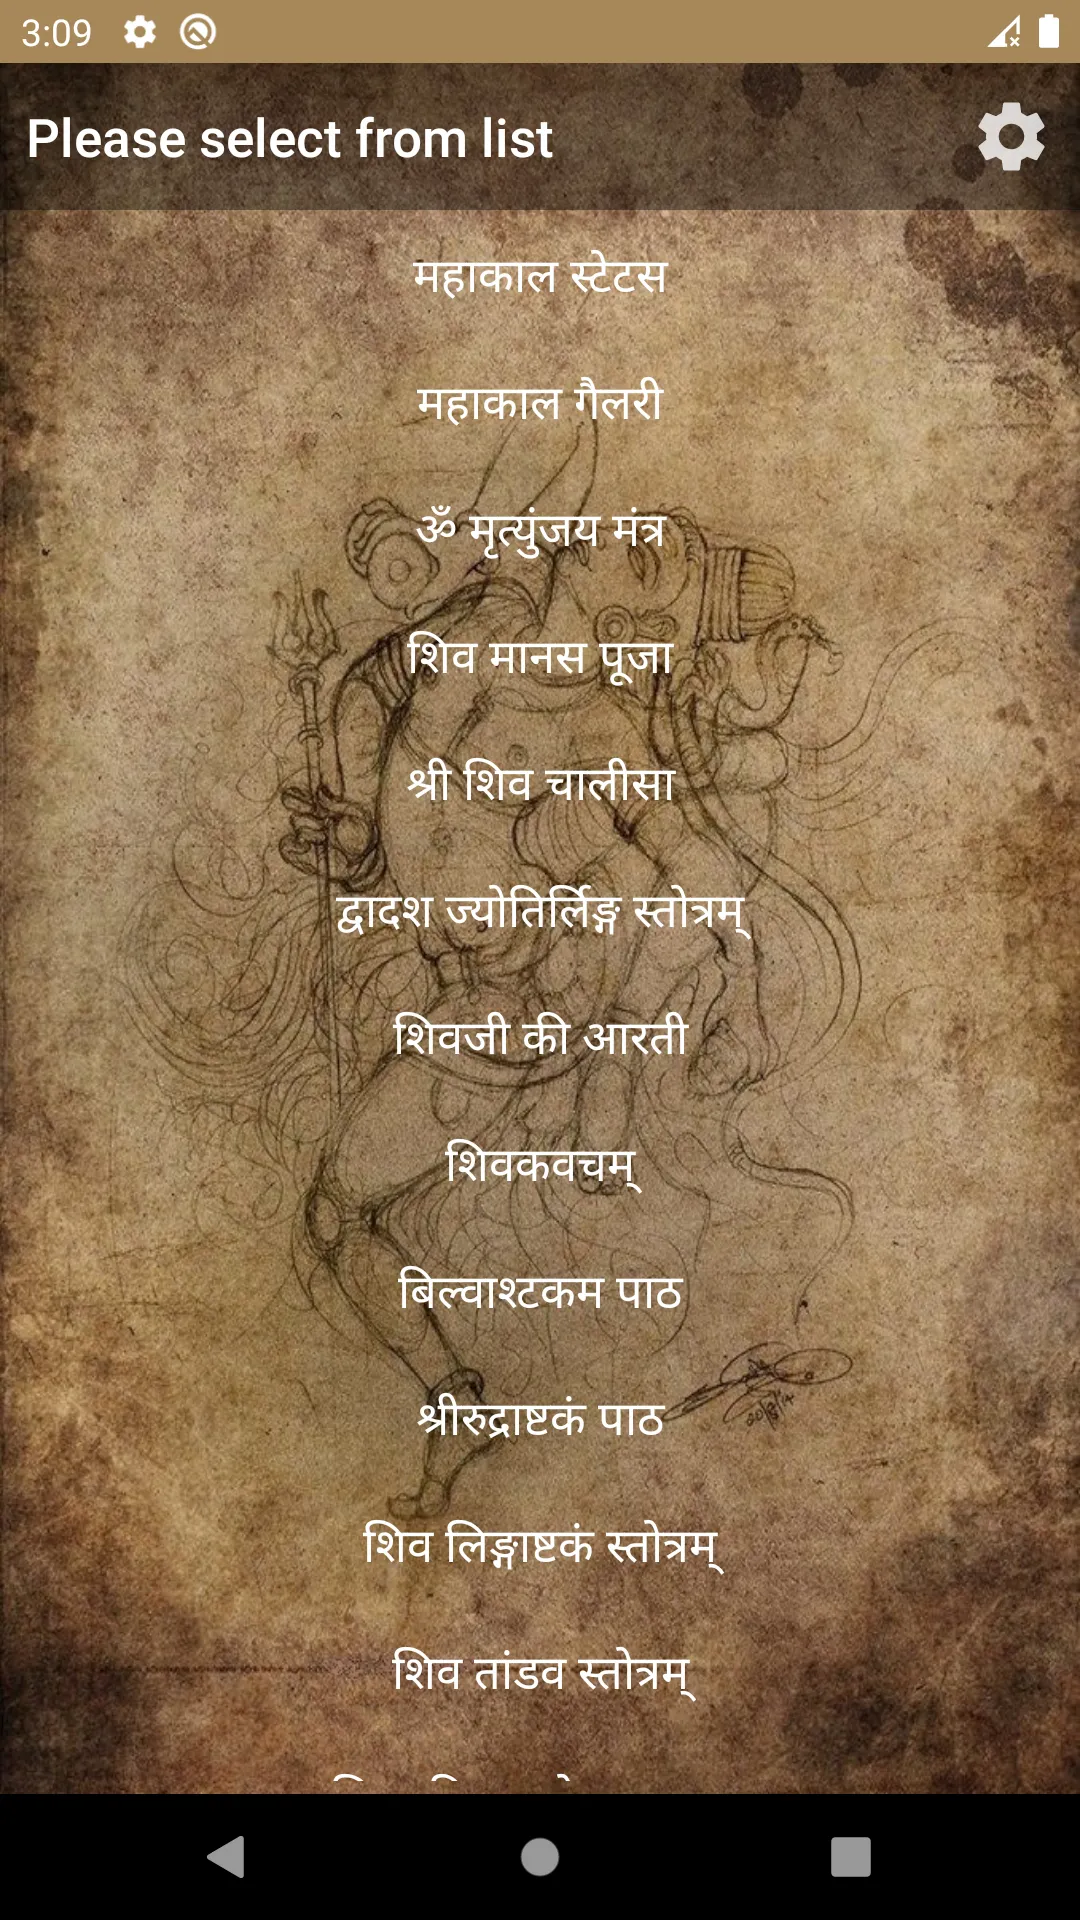 3:09
Please select from list
महाकाल स्टेटस
महाकाल गैलरी
ॐ मृत्युंजय मंत्र
शिव मानस पूजा
श्री शिव चालीसा
द्वादश ज्योतिर्लिङ्ग स्तोत्रम्
शिवजी की आरती
शिवकवचम्
बिल्वाश्टकम पाठ
श्रीरुद्राष्टकं पाठ
शिव लिङ्गाष्टकं स्तोत्रम्
शिव तांडव स्तोत्रम्